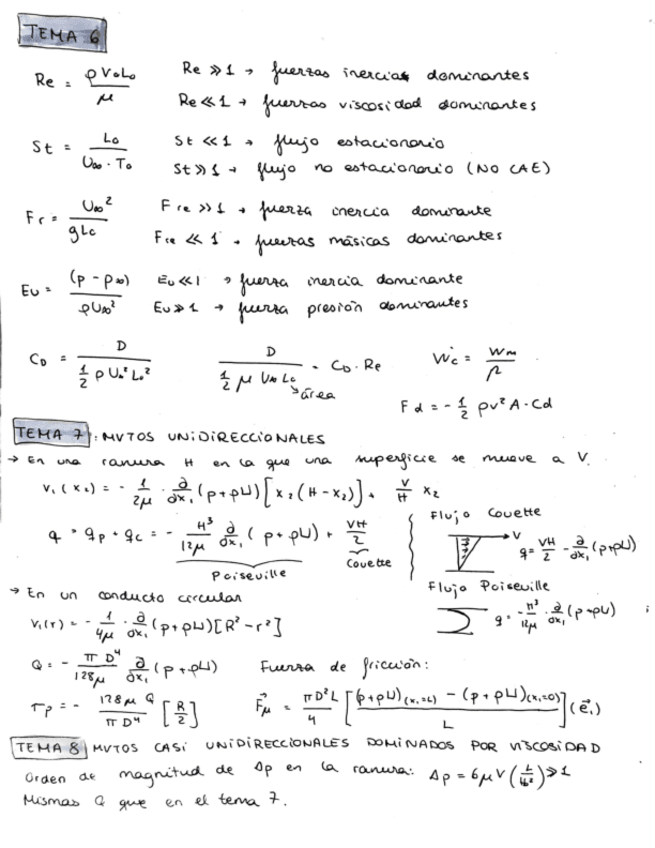 TEMA 6
Re = ρ V₀ L₀ / μ
Re ≫ 1 → fuerzas inercias dominantes
Re ≪ 1 → fuerzas viscosidad dominantes
St = L₀ / (U∞ · T₀)
St ≪ 1 → flujo estacionario
St ≫ 1 → flujo no estacionario (NO CAE)
Fr = U∞² / g Lc
Fre ≫ 1 → fuerza inercia dominante
Fre ≪ 1 → fuerzas másicas dominantes
Eu = (p - p∞) / ρU∞²
Eu ≪ 1 → fuerza inercia dominante
Eu ≫ 1 → fuerza presión dominantes
C_D = D / (½ ρ U∞² L₀²)
D / (½ μ U∞ L₀) = C_D · Re
→ área
Fd = - ½ ρv² A · Cd
TEMA 7: MVTOS UNIDIRECCIONALES
→ En una ranura H en la que una superficie se mueve a V.
v₁(x₂) = - 1/2μ · ∂/∂x₁ (p + ρU) [x₂(H - x₂)] + V/H x₂
q = qp + qc = - H³/12μ ∂/∂x₁ (p + ρU) + VH/2
Poiseville
Couette
Flujo Couette
V
q = VH/2 - ∂/∂x₁ (p+ρU)
Flujo Poiseville
q = - H³/12μ · ∂/∂x₁ (p+ρU)
→ En un conducto circular
v₁(r) = - 1/4μ · ∂/∂x₁ (p + ρU) [R² - r²]
Q = - πD⁴/128μ ∂/∂x₁ (p + ρU)
Fuerza de fricción:
τp = - 128μQ/πD⁴ [R/2]
F⃗μ = πD²L/4 [(p+ρU)(x₁=L) - (p+ρU)(x₁=0) / L] (e⃗₁)
TEMA 8 MVTOS CASI UNIDIRECCIONALES DOMINADOS POR VISCOSIDAD
Orden de magnitud de Δp en la ranura: Δp = 6μV (L/ ) ≫ 1
Mismas Q que en el tema 7.